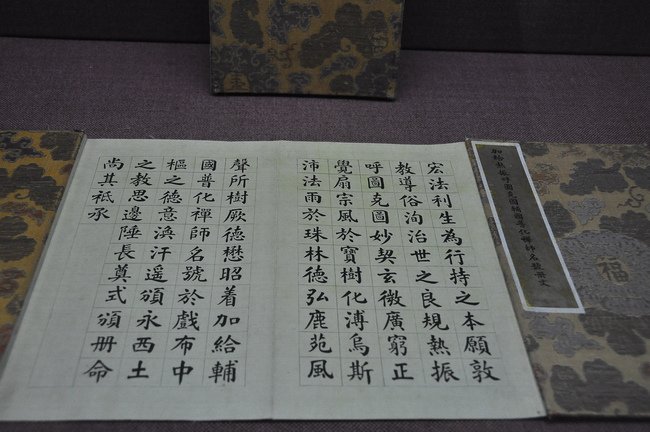 加給熱振呼圖克圖輔國普化禪師名號冊文
福
宏法利生為行持之本願敦
教導俗洵治世之良規熱振
呼圖克圖妙契玄微廣窮正
覺扇宗風於寶樹化溥烏斯
沛法雨於珠林德弘鹿苑風
聲所樹厥德懋昭着加給輔
國普化禪師名號於戲布中
樞之德意渙汗遥頒永西土
之教思邊陲長奠式頒册命
尚其祗承